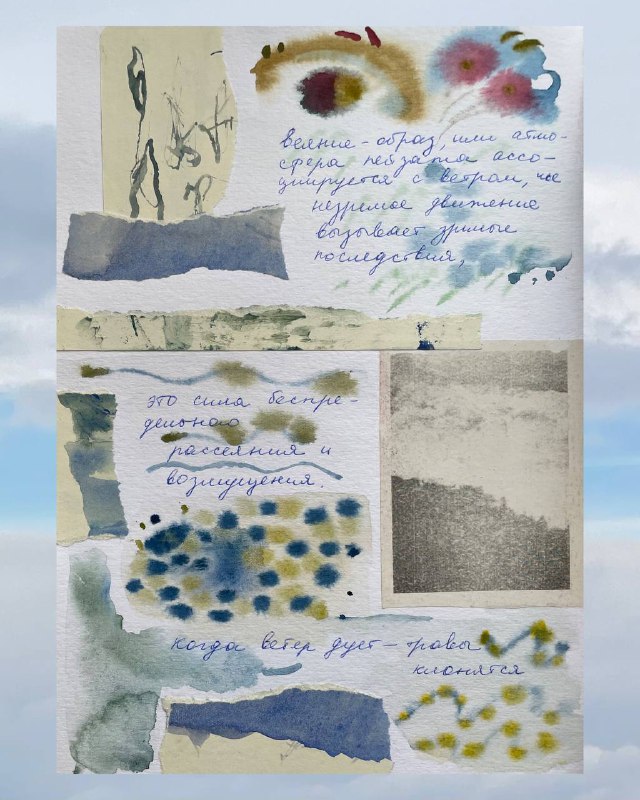 веяние - образ, или атмо-
сфера пейзажа ассо-
циируется с ветром, чье
незримое движение
вызывает зримые
последствия,
это сила беспре-
дельного
рассеяния и
возмущения.
когда ветер дует - травы
клонятся